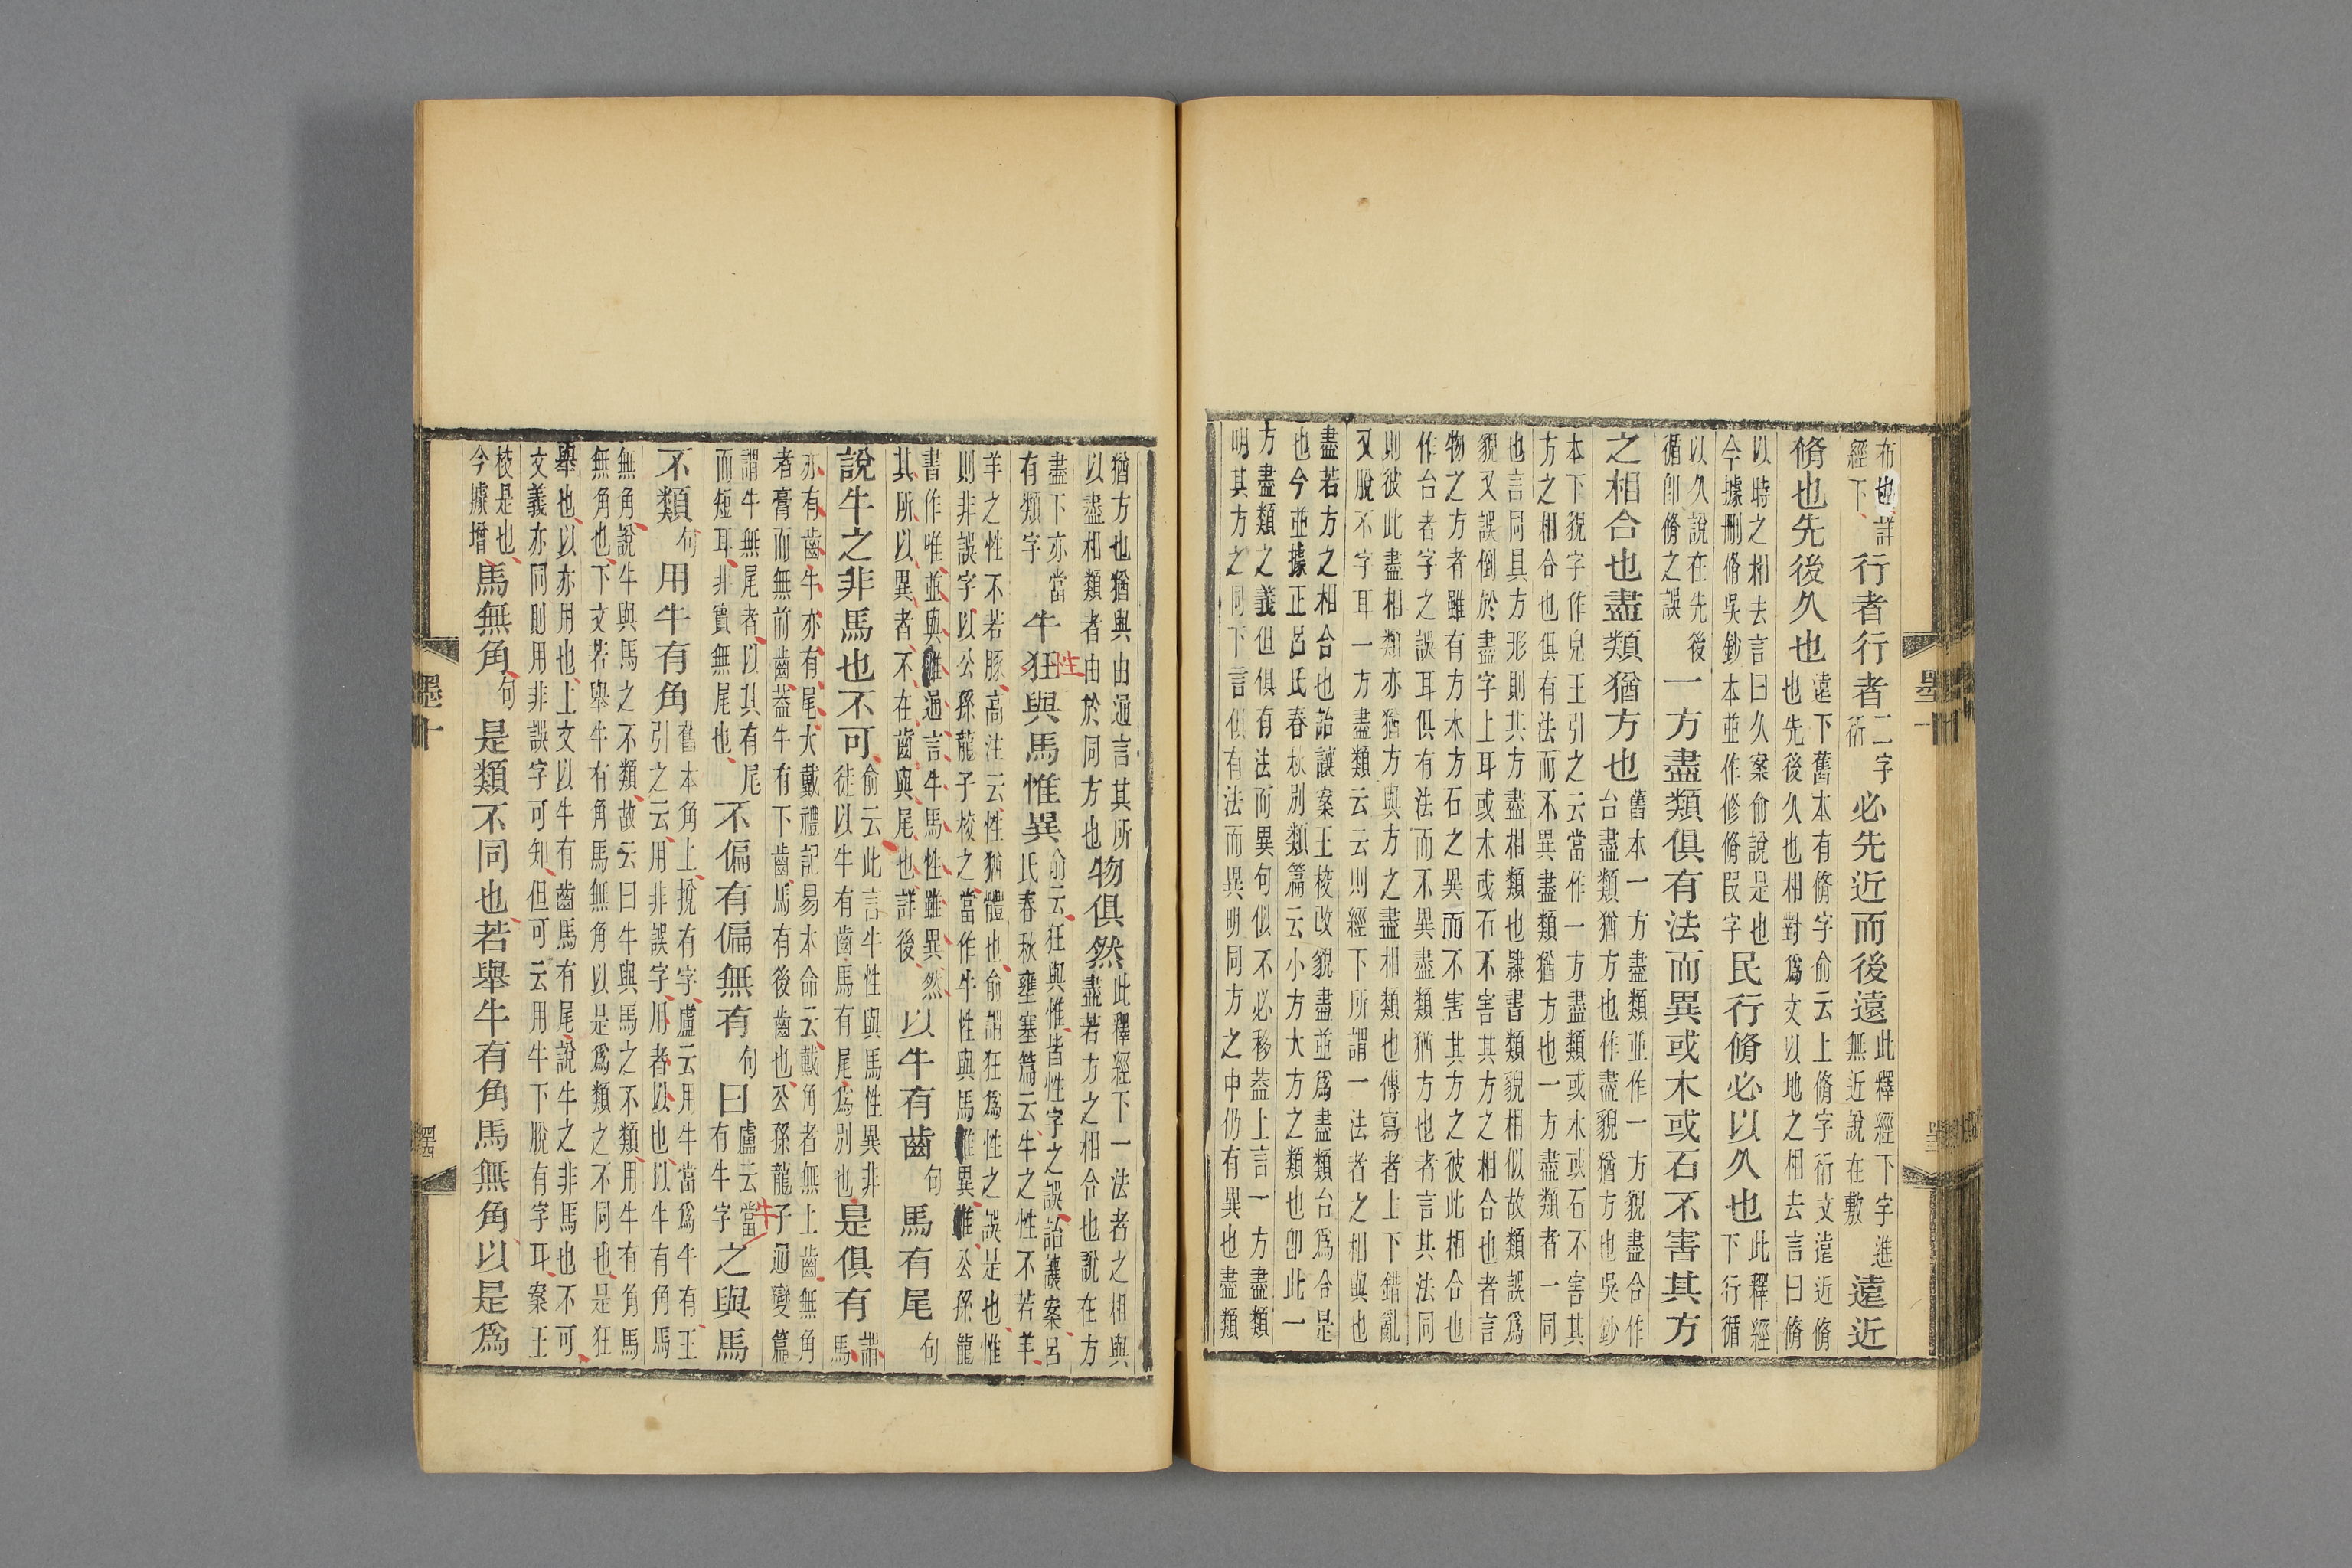 布也詳
經下
行者行者
二字
衍
必先近而後遠
此釋經下字進
無近說在敷
遠近
脩也先後久也
遠下舊本有脩字俞云上脩字衍文遠近脩
也先後久也相對爲文以地之相去言曰脩
以時之相去言曰久案俞說是也
今據刪脩吳鈔本並作修脩叚字
民行脩必以久也
此釋經
下行循
以久說在先後
循卽脩之誤
一方盡類俱有法而異或木或石不害其方
之相合也盡類猶方也
舊本一方盡類並作一方貌盡合作
台盡類猶方也作盡貌猶方也吳鈔
本下貌字作皃王引之云當作一方盡類或木或石不害其
方之相合也俱有法而不異盡類猶方也一方盡類者一同
也言同具方形則其方盡相類也隷書類貌相似故類誤爲
貌又誤倒於盡字上耳或木或石不害其方之相合也者言
物之方者雖有方木方石之異而不害其方之彼此相合也
作台者字之誤耳俱有法而不異盡類猶方也者言其法同
則彼此盡相類亦猶方與方之盡相類也傳寫者上下錯亂
又脫不字耳一方盡類云云則經下所謂一法者之相與也
盡若方之相合也詒讓案王校改貌盡並爲盡類台爲合是
也今並據正呂氏春秋別類篇云小方大方之類也卽此一
方盡類之義但俱有法而異句似不必移葢上言一方盡類
明其方之同下言俱有法而異明同方之中仍有異也盡類
猶方也猶與由通言其所
以盡相類者由於同方也
物俱然
此釋經下一法者之相與
盡若方之相合也說在方
盡下亦當
有類字
牛狂與馬惟異
性
俞云狂與惟皆性字之誤詒讓案呂
氏春秋壅塞篇云牛之性不若羊
羊之性不若豚高注云性猶體也俞謂狂爲性之誤是也惟
則非誤字以公孫龍子校之當作牛性與馬惟異惟公孫龍
書作唯並與雖通言牛馬性雖異然
其所以異者不在齒與尾也詳後
以牛有齒
句
馬有尾
句
說牛之非馬也不可
俞云此言牛性與馬性異非
徒以牛有齒馬有尾爲別也
是俱有
謂
馬
亦有齒牛亦有尾大戴禮記易本命云戴角者無上齒無角
者膏而無前齒葢牛有下齒馬有後齒也公孫龍子通變篇
謂牛無尾者以其有尾
而短耳非實無尾也
不偏有偏無有
句
曰
盧云當
有牛字
牛
之與馬
不類
句
用牛有角
舊本角上挩有字盧云用牛當爲牛有王
引之云用非誤字用者以也以牛有角馬
無角說牛與馬之不類故云曰牛與馬之不類用牛有角馬
無角也下文若舉牛有角馬無角以是爲類之不同也是狂
舉也以亦用也上文以牛有齒馬有尾說牛之非馬也不可
文義亦同則用非誤字可知但可云用牛下脫有字耳案王
校是也
今據增
馬無角
句
是類不同也若舉牛有角馬無角以是爲
墨十